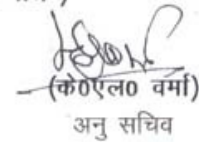 (के0एल0 वर्मा)
अनु सचिव